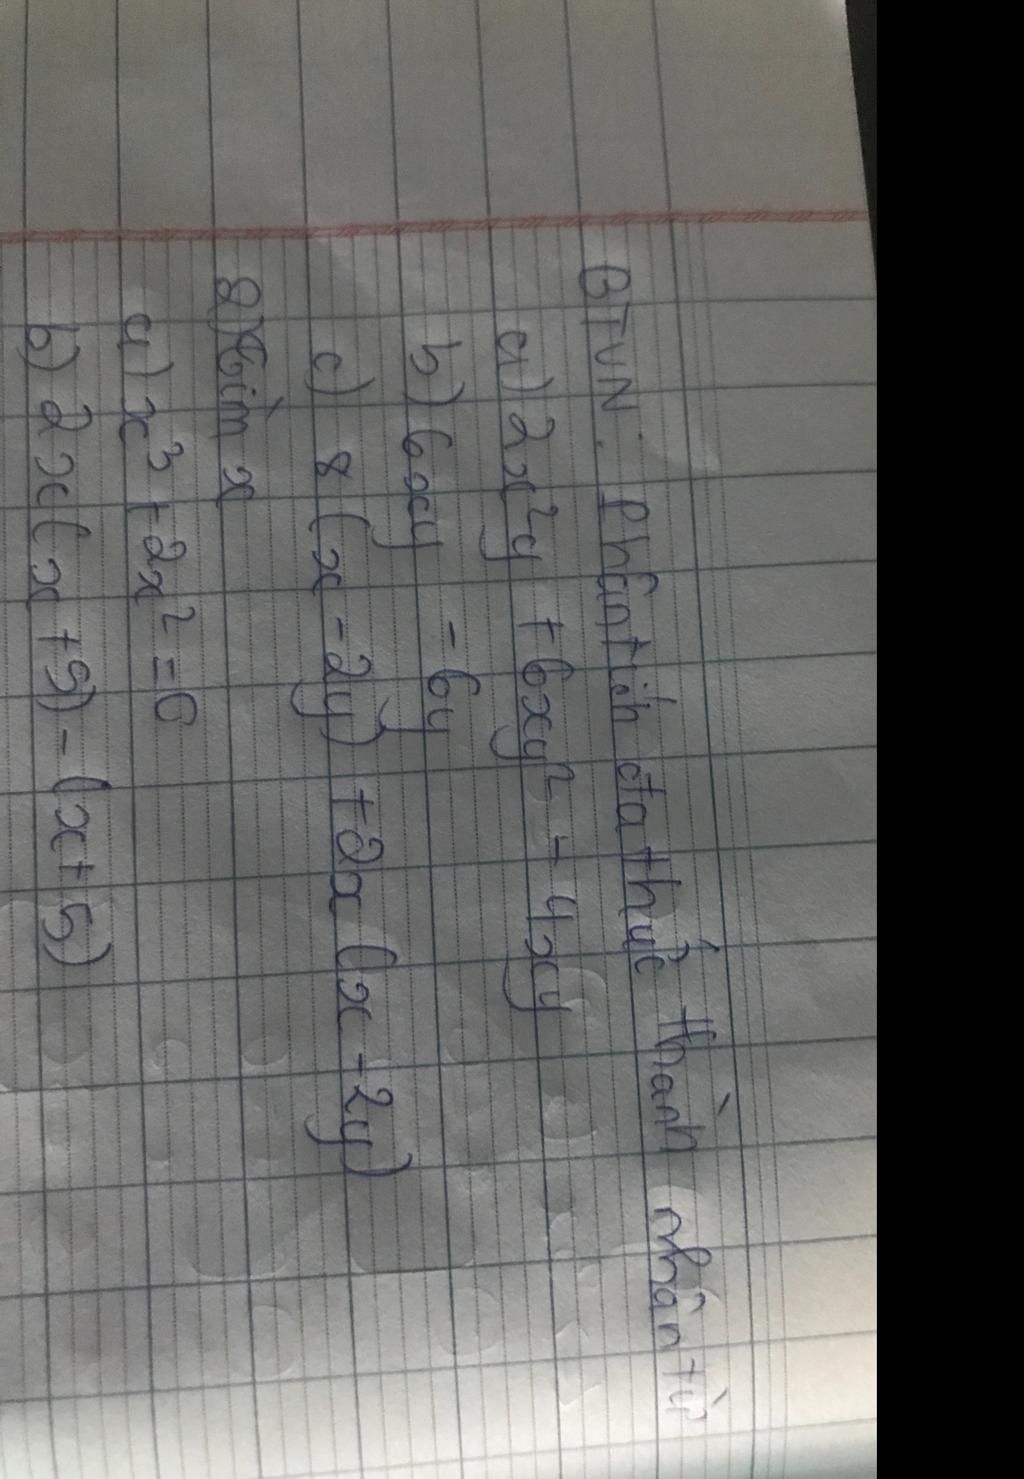 BTVN: Phân tích đa thức thành nhân tử
a) 2x²y + 6xy² - 4xy
b) 6xy - 6y
c) 8(x - 2y) + 2x(x - 2y)
2) Tìm x
a) x³ + 2x² = 0
b) 2x(x + 5) - (x + 5)